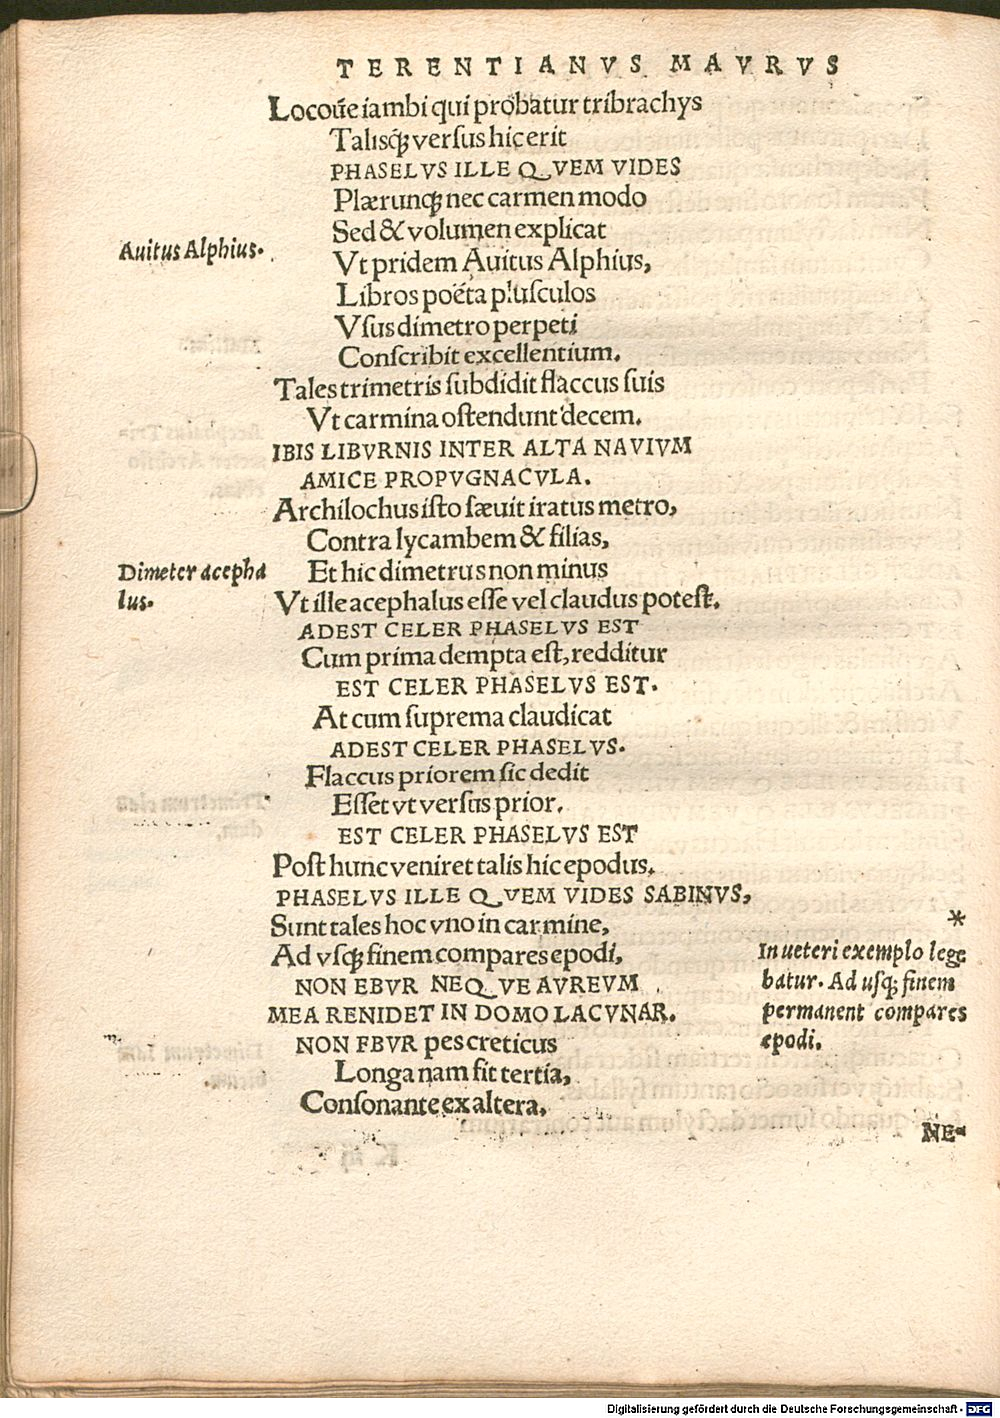 TERENTIANVS MAVRVS
Locoũe iambi qui probatur tribrachys
Talisq; versus hic erit
PHASELVS ILLE QVEM VIDES
Plærunq; nec carmen modo
Sed & volumen explicat
Auitus Alphius.
Vt pridem Auitus Alphius,
Libros poëta plusculos
Vsus dimetro perpeti
Conscribit excellentium.
Tales trimetris subdidit flaccus suis
Vt carmina ostendunt decem.
IBIS LIBVRNIS INTER ALTA NAVIVM
AMICE PROPVGNACVLA.
Archilochus isto sæuit iratus metro,
Contra lycambem & filias,
Dimeter acepha
lus.
Et hic dimetrus non minus
Vt ille acephalus esse vel claudus potest.
ADEST CELER PHASELVS EST
Cum prima dempta est, redditur
EST CELER PHASELVS EST.
At cum suprema claudicat
ADEST CELER PHASELVS.
Flaccus priorem sic dedit
Esset vt versus prior.
EST CELER PHASELVS EST
Post hunc veniret talis hic epodus.
PHASELVS ILLE QVEM VIDES SABINVS,
Sunt tales hoc vno in carmine,
Ad vsq; finem compares epodi,
NON EBVR NEQVE AVREVM
MEA RENIDET IN DOMO LACVNAR.
NON FBVR pes creticus
Longa nam fit tertia,
Consonante ex altera.
*
In ueteri exemplo lege
batur. Ad usq; finem
permanent compares
epodi.
NE-
Digitalisierung gefördert durch die Deutsche Forschungsgemeinschaft - DFG